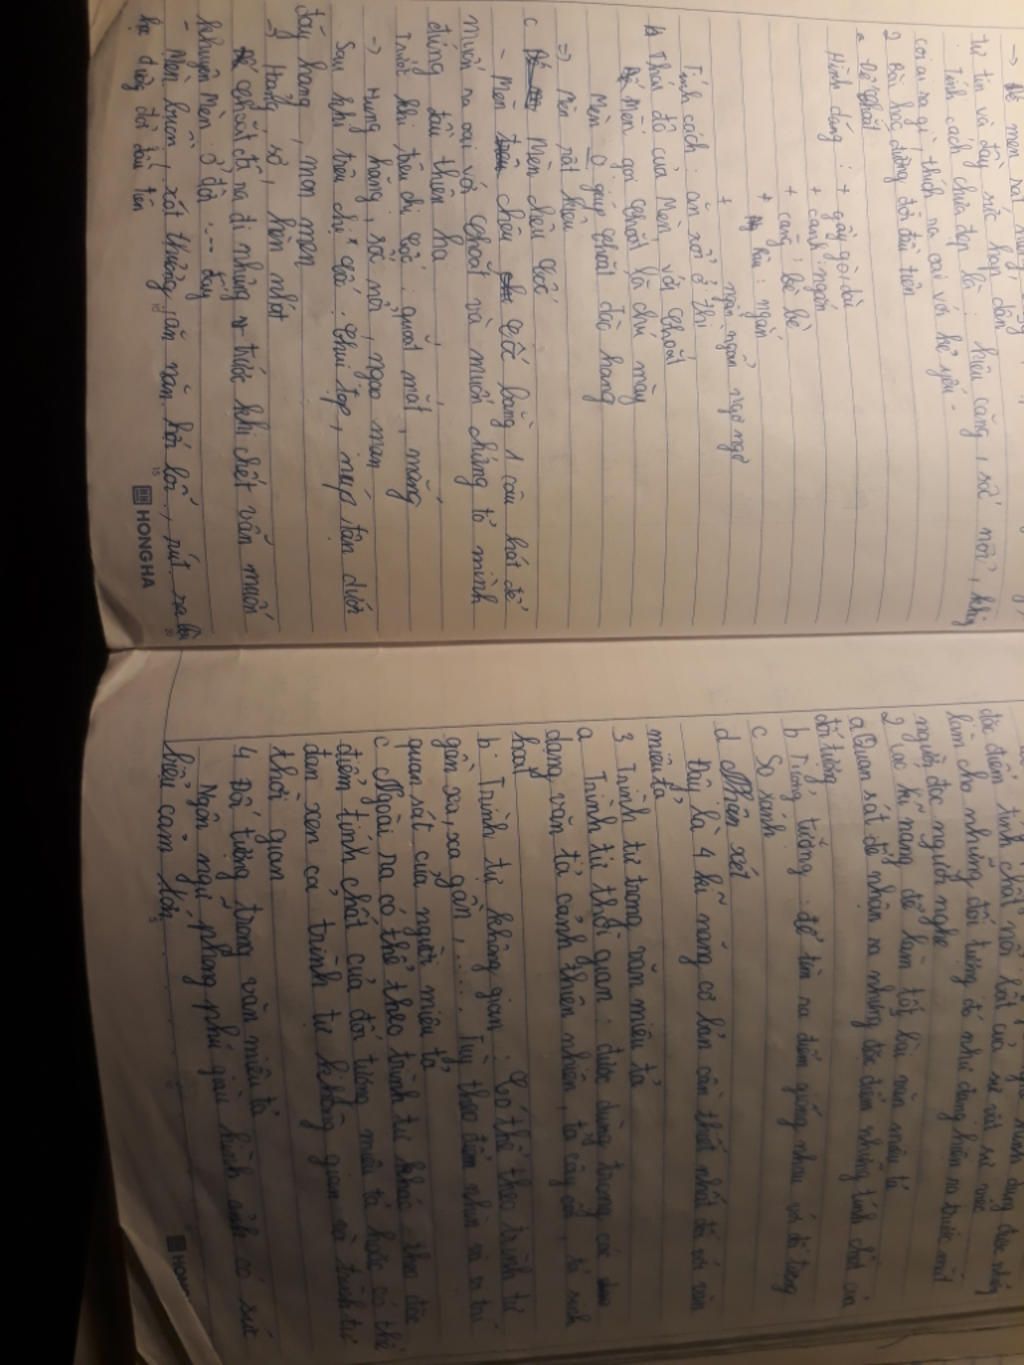 →
từ tin và đầy sức hấp dẫn
Tính cách chưa đẹp là : kiêu căng, sốc nổi, khg
coi ai ra gì, thích ra oai với kẻ yếu.
2 Bài học đường đời đầu tiên
a Dế Choắt
Hình dáng : + gầy gò, dài
+ cánh : ngắn
+ càng : bè bè
+ Râu : ngắn
+ ngẩn ngẩn ngơ ngơ
Tính cách : ăn xổi ở thì
b Thái độ của Mèn với Choắt
Mèn gọi Choắt là chú mày
Mèn 0 giúp Choắt đào hang
=> Mèn rất kiêu
c Mèn trêu Cốc
- Mèn trêu Cốc bằng 1 câu hát để
muốn ra oai với Choắt và muốn chứng tỏ mình
đứng đầu thiên hạ
Trước khi trêu chị Cốc : quắt mắt, mắng
-> Hung hăng, sốc nổi, ngạo mạn
Sau khi trêu chị Cốc : Chui tọt, núp tận dưới
đáy hang, mon men
-> Hoảng sợ, hèn nhát
Choắt đã ra đi nhưng trước khi chết vẫn muốn
khuyên Mèn ở đời .... đấy
- Mèn buồn, xót thương, ăn năn hối lỗi, rút ra bài
học đường đời đầu tiên
HONG HA
đặc điểm tính chất nổi bật của sự vật sự việc
làm cho những đối tượng đó như đang hiện ra trước mắt
người đọc người nghe
2 Các kĩ năng để làm tốt bài văn miêu tả
a Quan sát để nhận ra những đặc điểm những tính chất của
đối tượng
b Tưởng tượng : để tìm ra điểm giống nhau với đối tượng
c So sánh
d Nhận xét
Đây là 4 kĩ năng cơ bản cần thiết nhất đối với văn
miêu tả
3 Trình tự trong văn miêu tả
a Trình tự thời gian : được dùng trong các
dạng văn tả cảnh thiên nhiên, tả cây cối, tả sinh
hoạt
b. Trình tự không gian : Có thể theo trình tự
gần xa, xa gần, ..... Tuỳ theo điểm nhìn và vị trí
quan sát của người miêu tả
c Ngoài ra có thể theo trình tự khác theo đặc
điểm tính chất của đối tượng miêu tả hoặc có thể
đan xen cả trình tự không gian và trình tự
thời gian
4 Đối tượng trong văn miêu tả
Ngôn ngữ phong phú giàu hình ảnh có sức
biểu cảm lớn